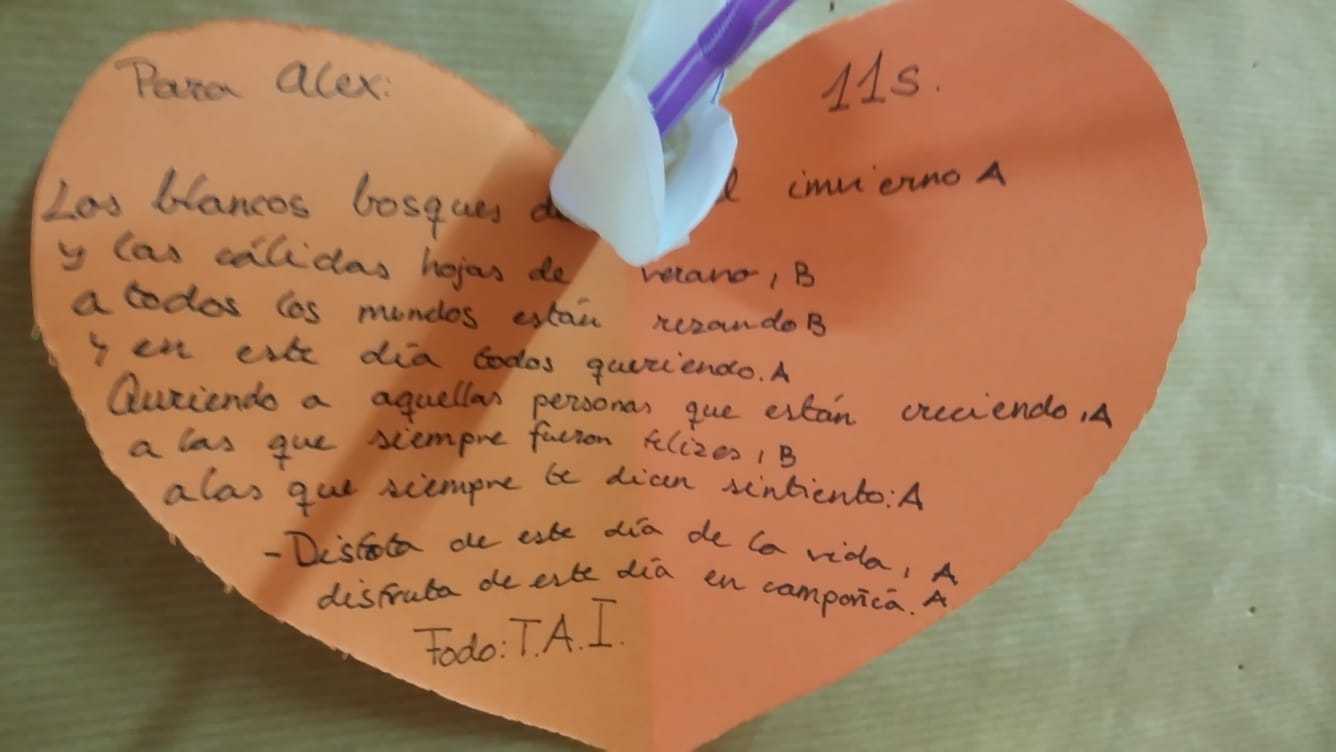 Para Alex:
11s.
Los blancos bosques invierno A
y las cálidas hojas de verano, B
a todos los mundos están rezando B
y en este día todos queriendo. A
Quriendo a aquellas personas que están creciendo, A
a las que siempre fueron felizes, B
a las que siempre te dicen sintiento: A
- Disfruta de este día de la vida, A
disfruta de este día en compañía. A
Fodo: T.A.I.